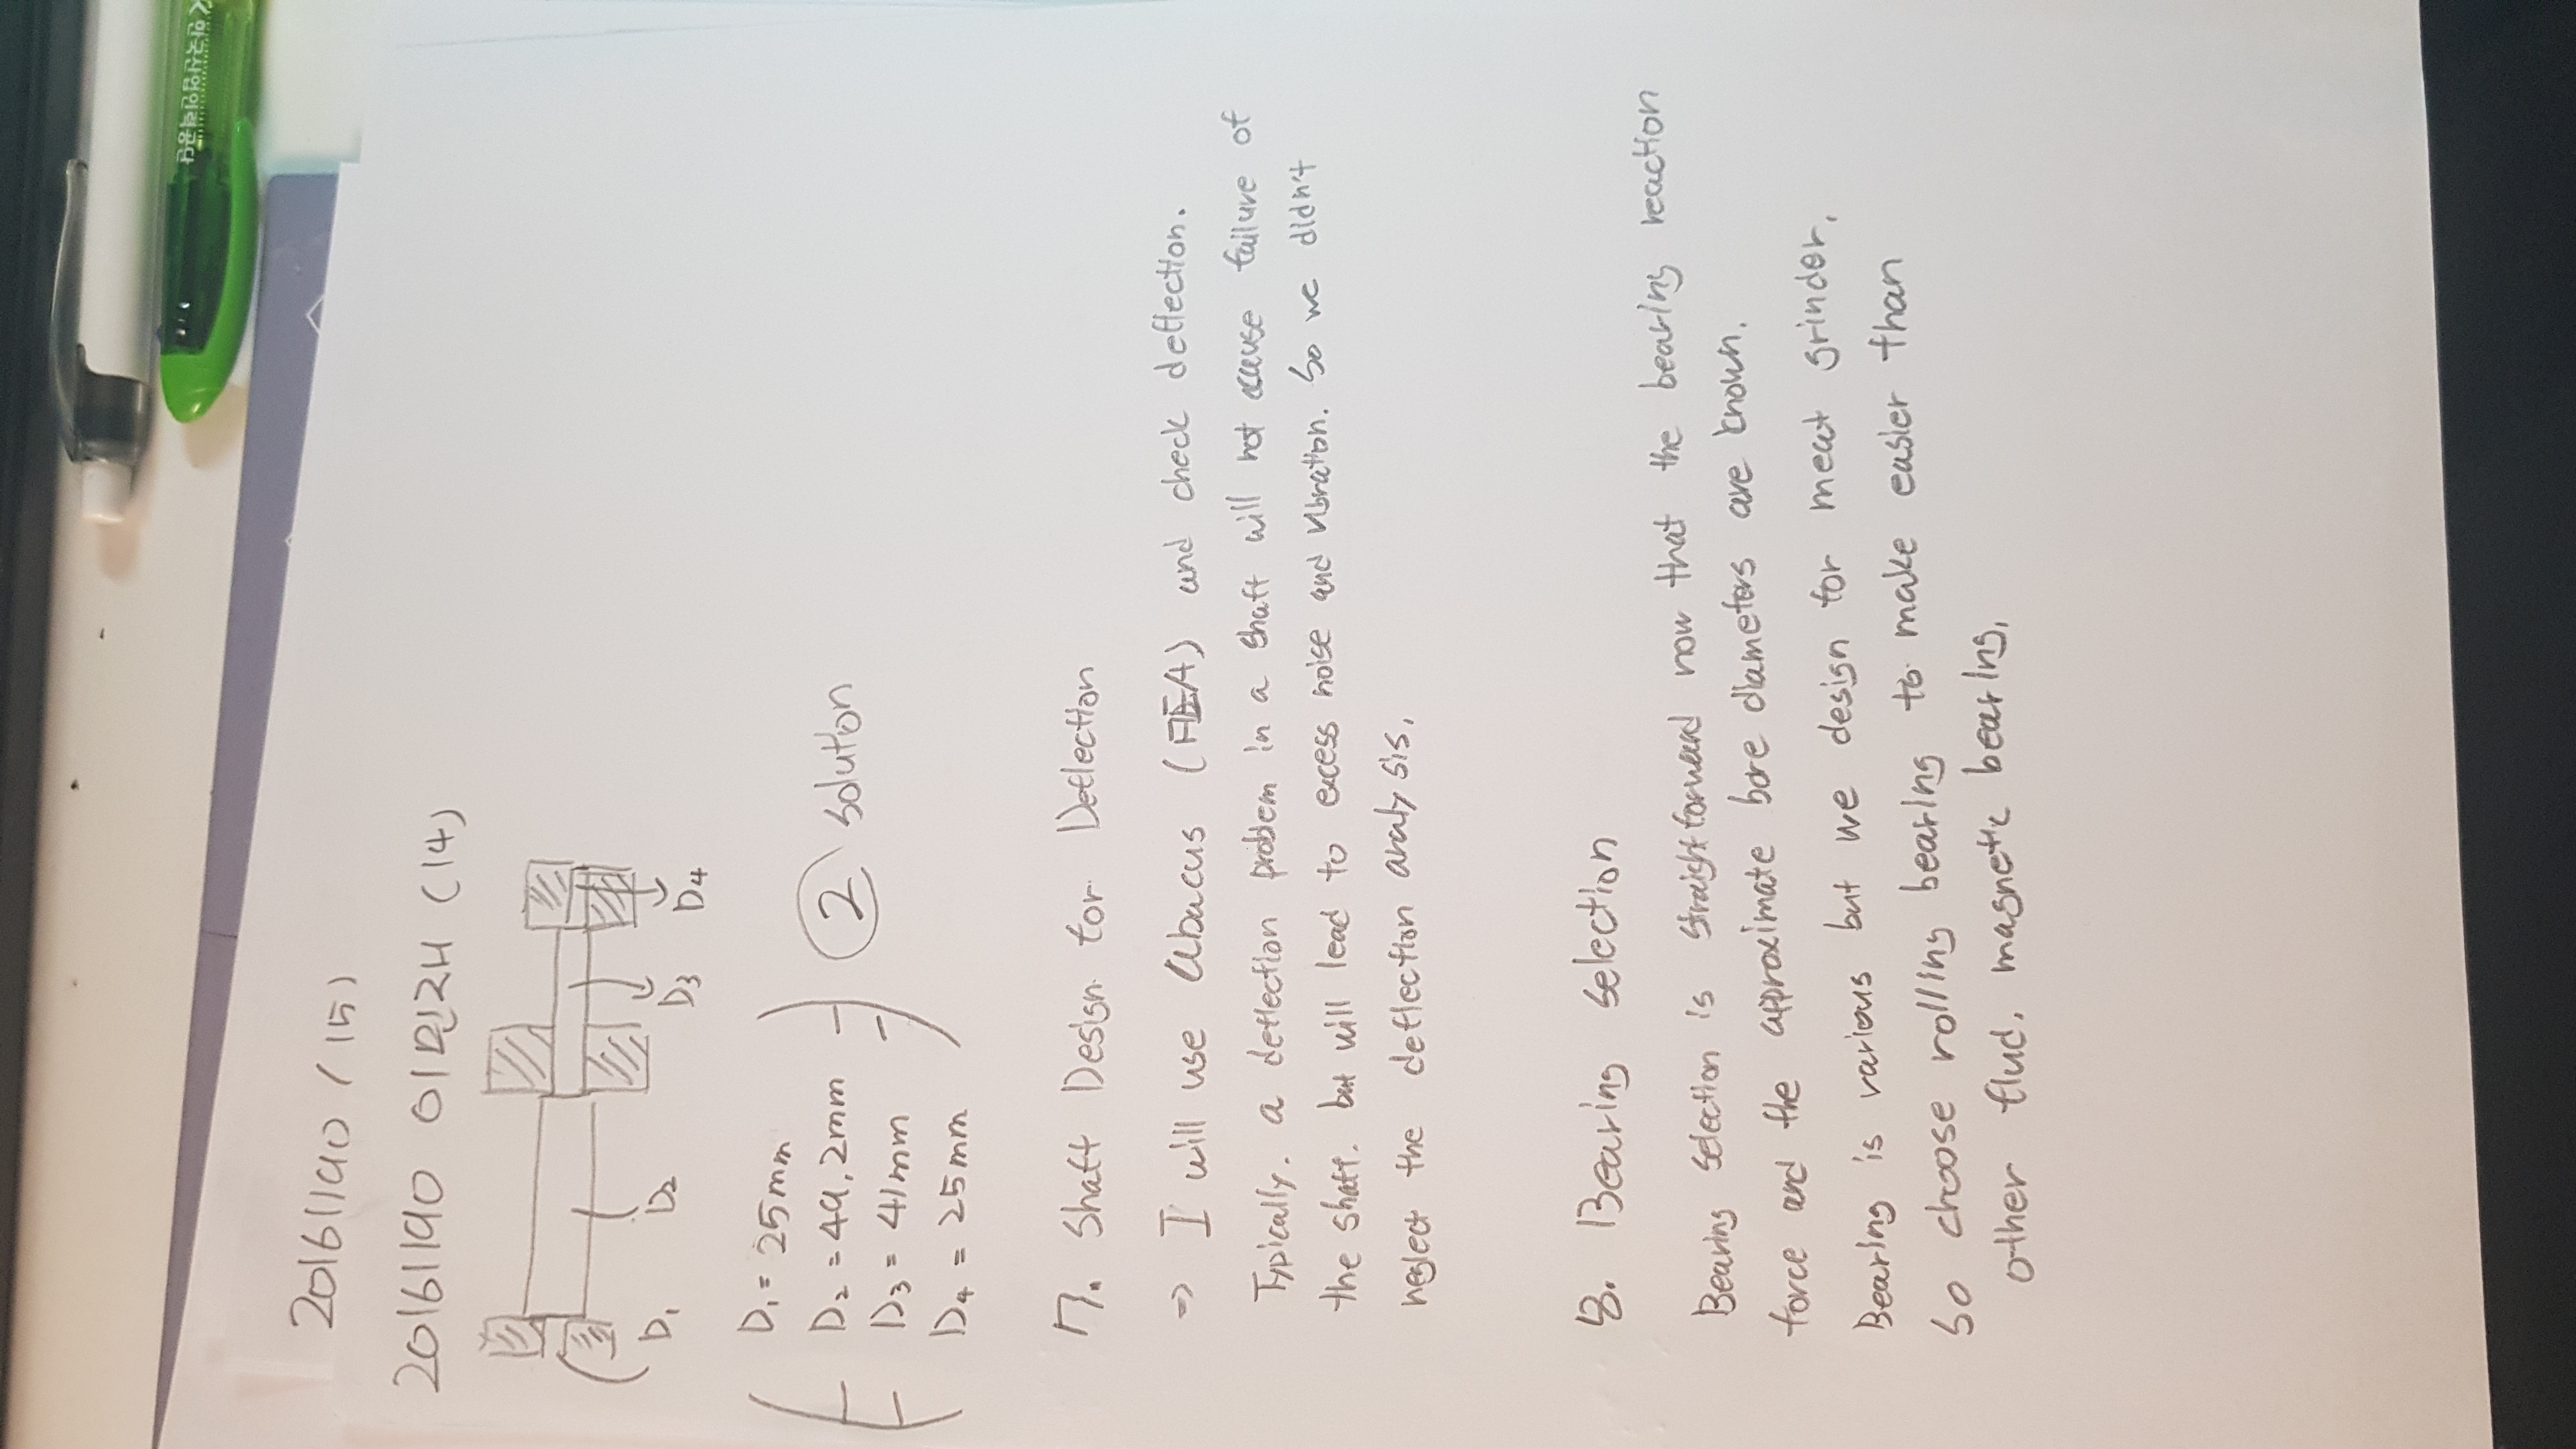 20161190 (15)
20161190 이민재 (14)
D₁ D₂ D₃ D₄
D₁ = 25mm
D₂ = 49.2mm
D₃ = 41mm
D₄ = 25mm
② solution
7. Shaft Design for Deflection
⇒ I will use Abacus (FEA) and check deflection.
Typically. a deflection problem in a shaft will not cause failure of
the shaft. but will lead to excess noise and vibration. So we didn't
neglect the deflection analysis.
8. Bearing selection
Bearing selection is straightforward now that the bearing reaction
force and the approximate bore diameters are known.
Bearing is various but we design for meat grinder,
so choose rolling bearing to make easier than
other flud. magnetic bearing,